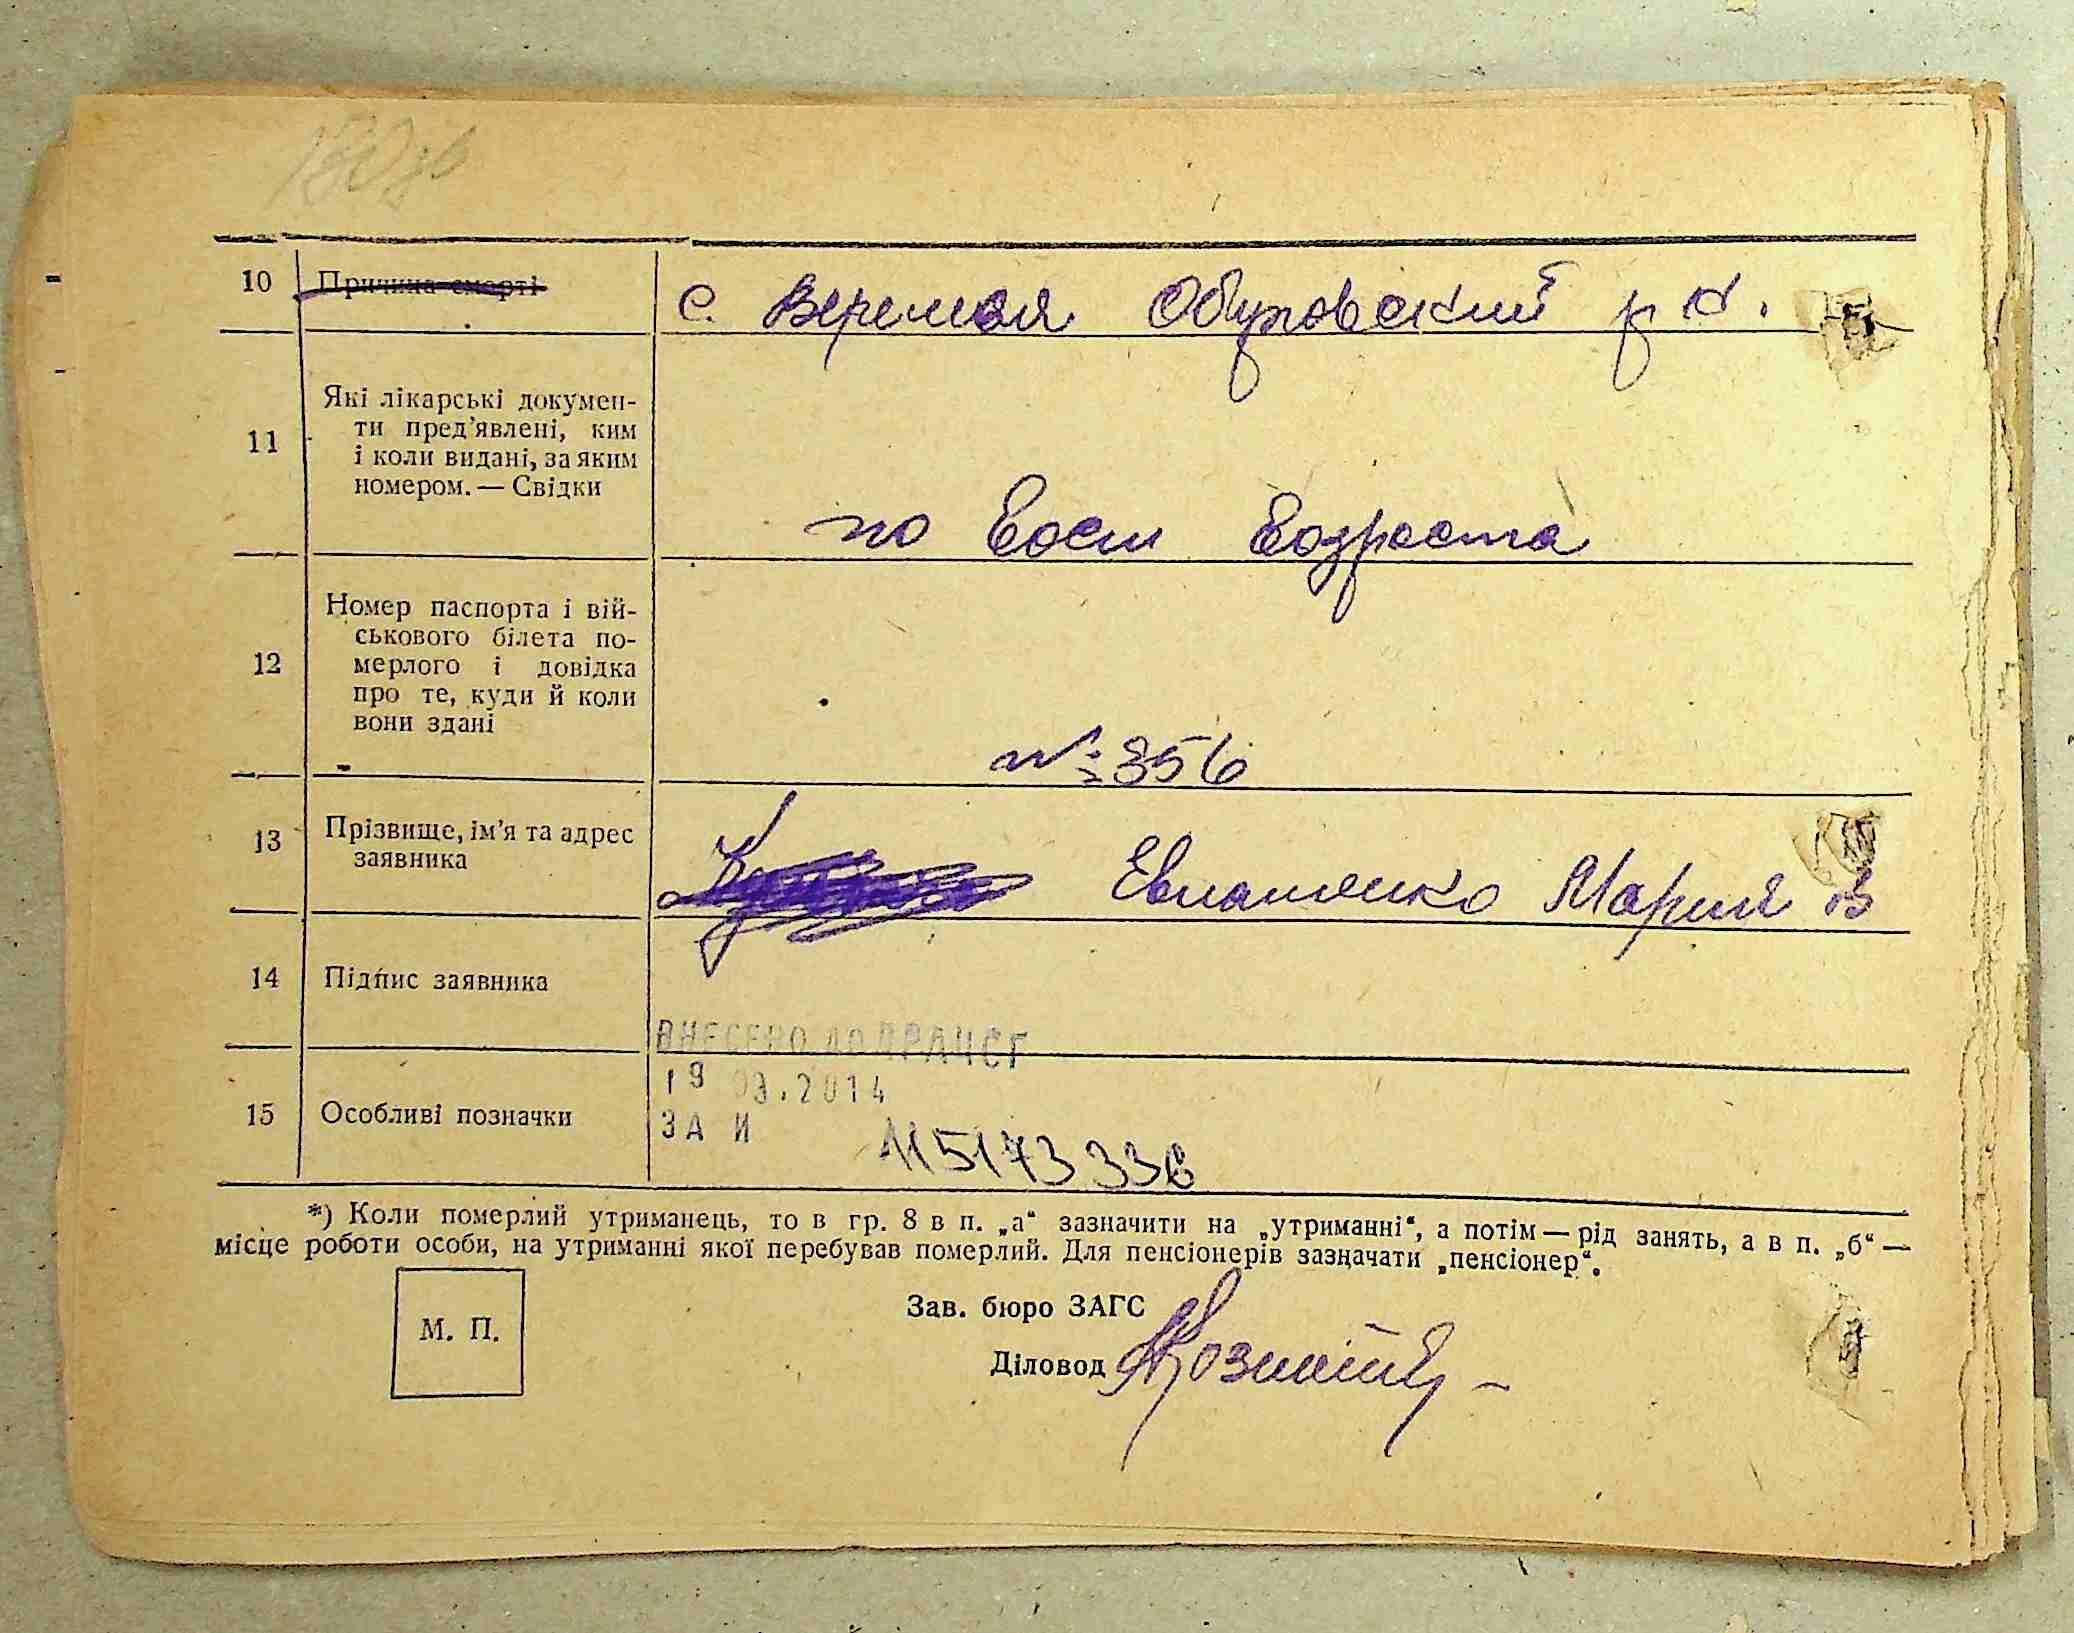 10 Причина смерті с. Веремья Обуховский р н.
11 Які лікарські докумен-
ти пред’явлені, ким
і коли видані, за яким
номером. — Свідки
по восст возраста
12 Номер паспорта і вій-
ськового білета по-
мерлого і довідка
про те, куди й коли
вони здані
№ 356
13 Прізвище, ім’я та адрес
заявника
Мария В
14 Підпис заявника
ВНЕСЕНО ДО ДРАЦСГ
19 03.2014
15 Особливі позначки
ЗА И 115173336
*) Коли померлий утриманець, то в гр. 8 в п. „а“ зазначити на „утриманні“, а потім — рід занять, а в п. „б“ —
місце роботи особи, на утриманні якої перебував померлий. Для пенсіонерів зазначати „пенсіонер“.
М. П.
Зав. бюро ЗАГС
Діловод